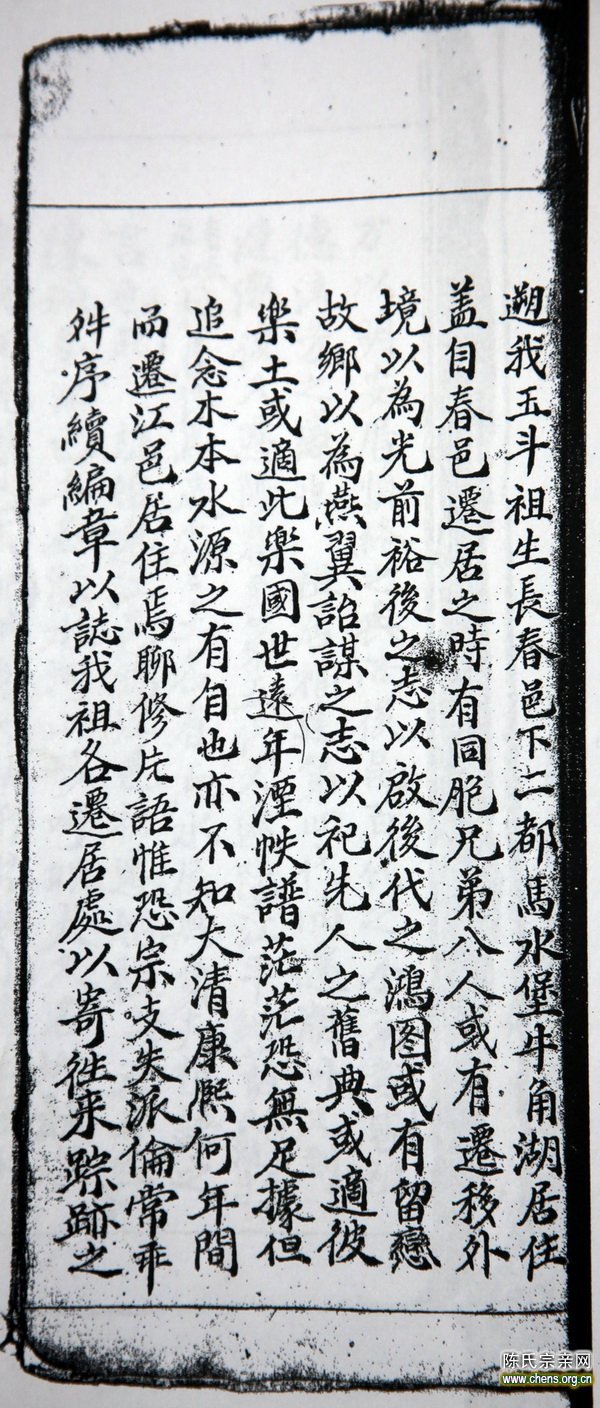 遡我玉斗祖生長春邑下二都馬水堡牛角湖居住
盖自春邑遷居之時有同胞兄弟八人或有遷移外
境以為光前裕後之志以啟後代之鴻图或有留戀
故鄉以為燕翼詒謀之志以祀先人之舊典或適彼
樂土或適此樂國世遠年湮帙譜茫茫恐無足據但
追念木本水源之有自也亦不知大清康熈何年間
而遷江邑居住焉聊修片語惟恐宗支失派倫常乖
舛序續編章以誌我祖各遷居處以寄徃来踪跡之
陈氏宗亲网
www.chens.org.cn